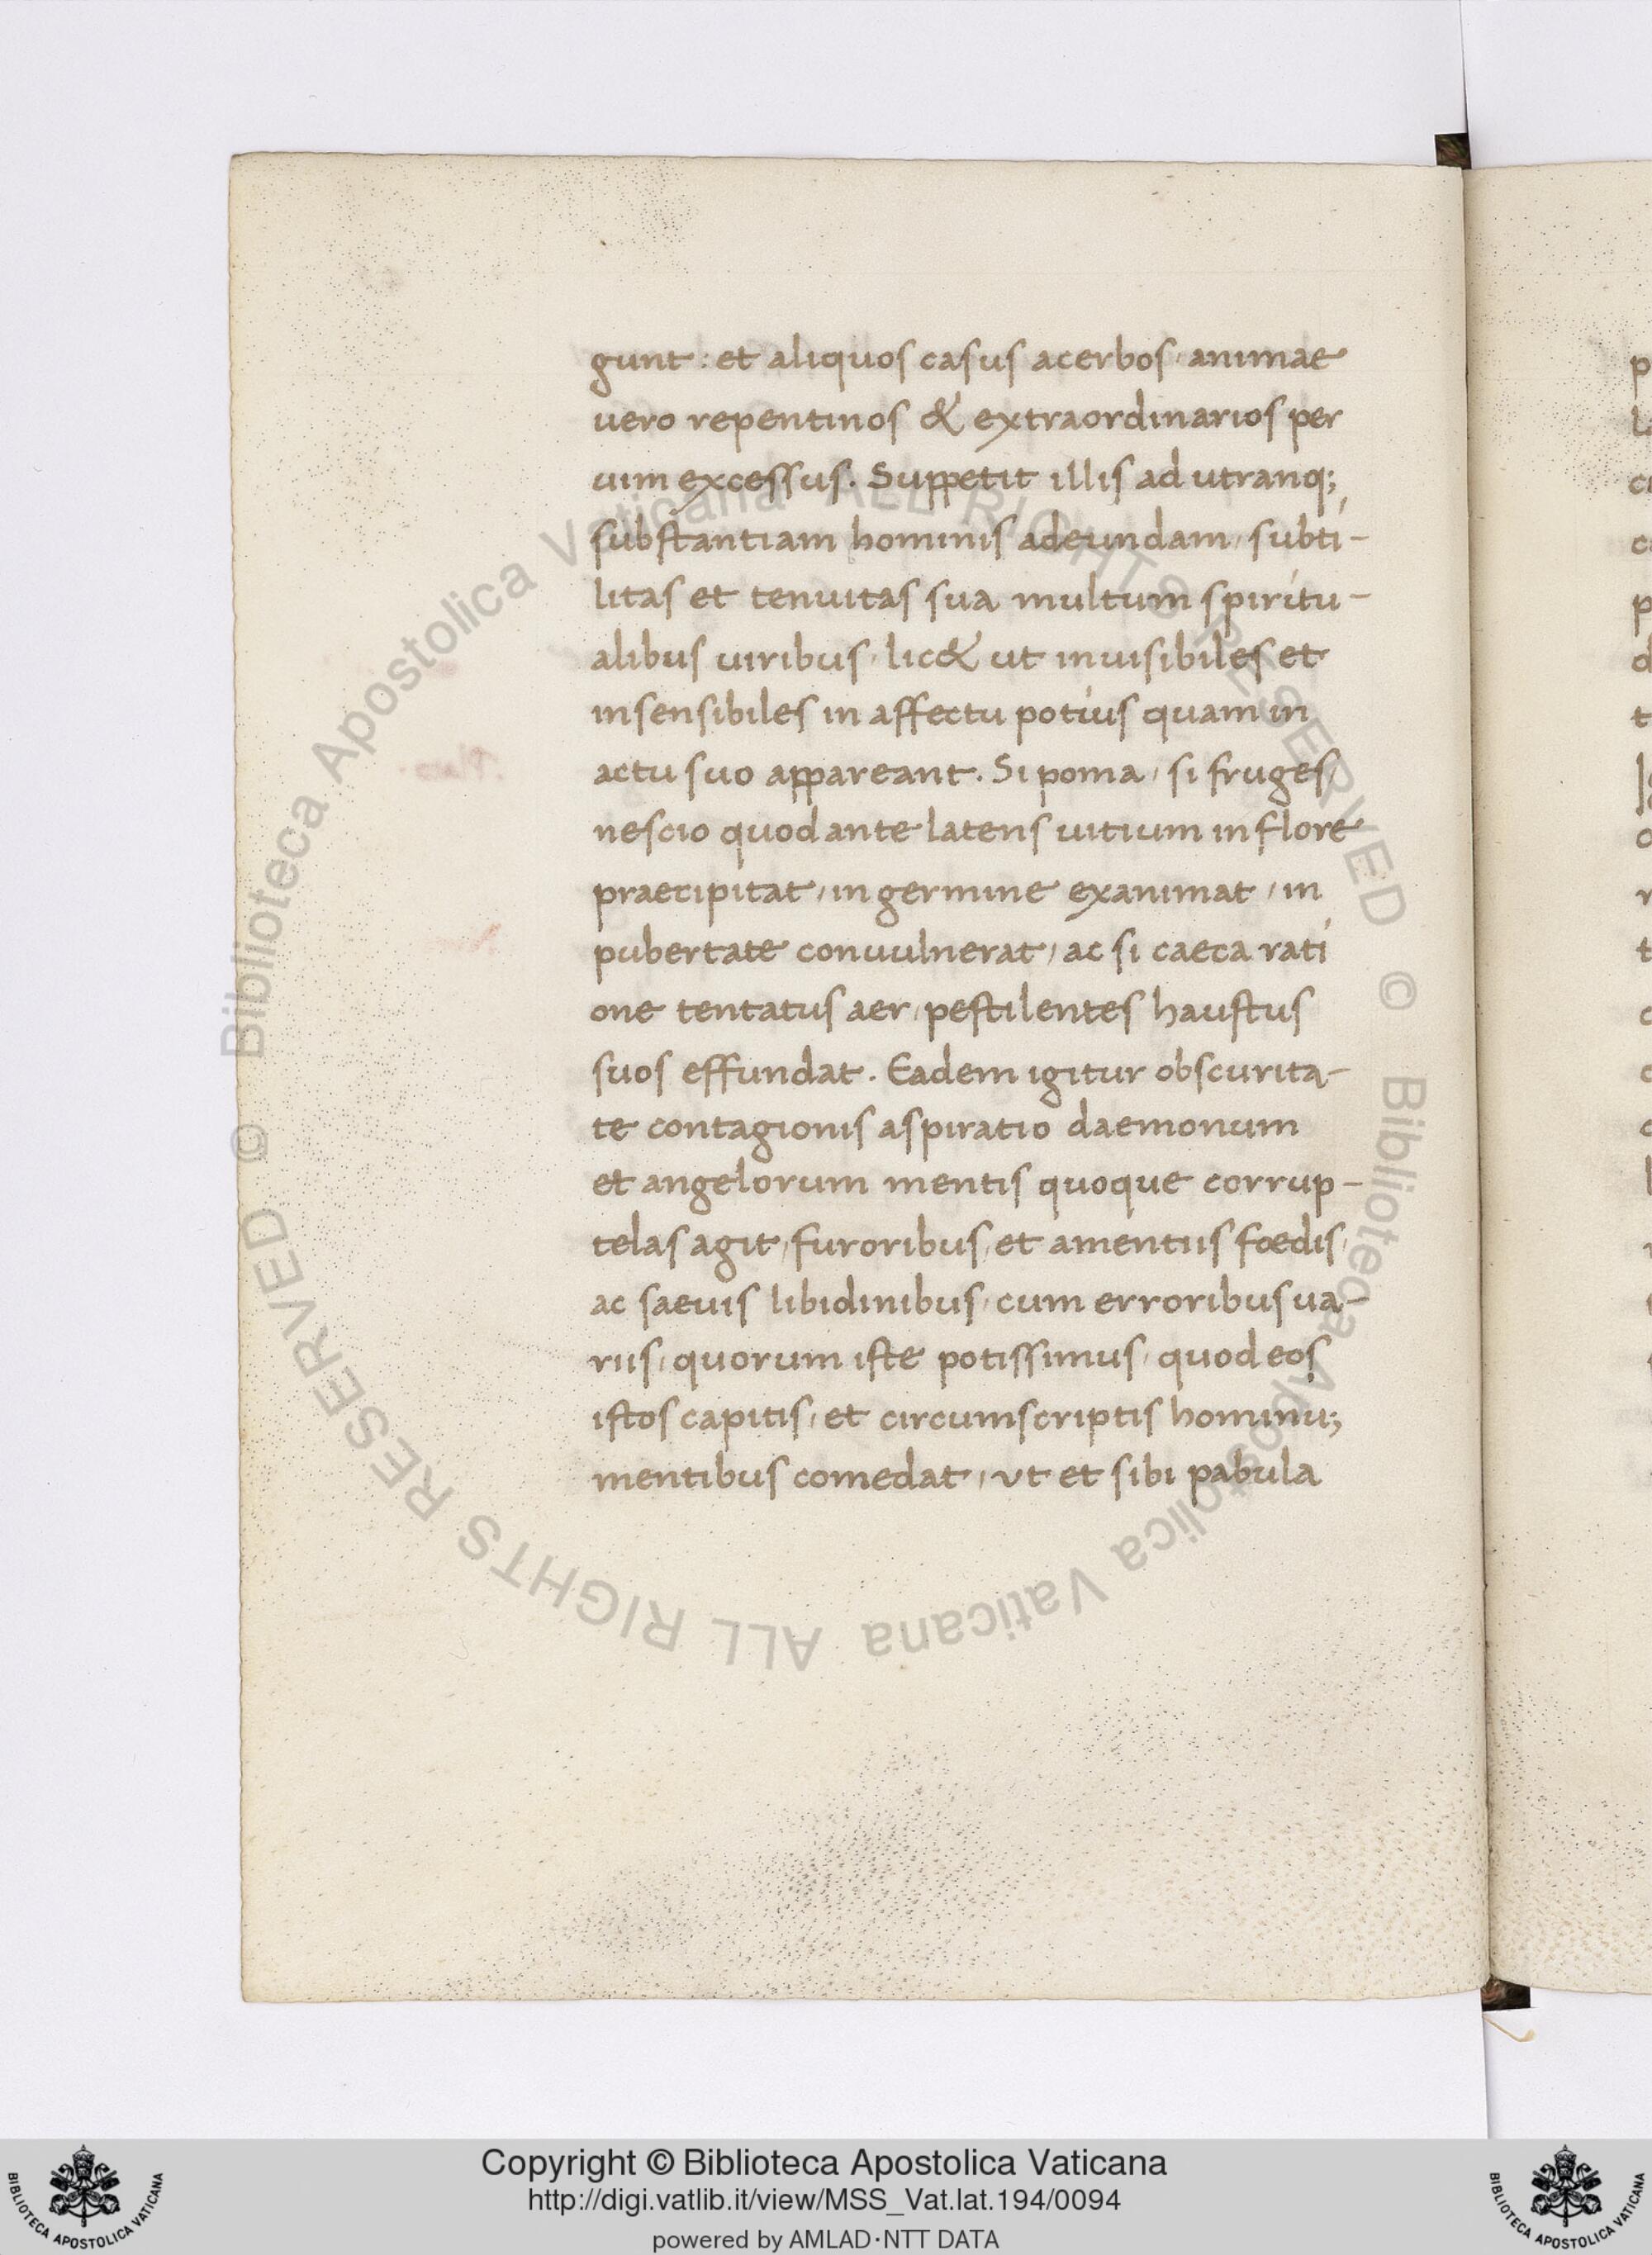 gunt: et aliquos casus acerbos, animae
uero repentinos & extraordinarios per
uim excessus. Suppetit illis ad utranq;
substantiam hominis adeundam, subti-
litas et tenuitas sua multum spiritu-
alibus uiribus, lic& ut inuisibiles et
insensibiles in affectu potius quam in
actu suo appareant. Si poma, si fruges,
nescio quod ante latens uitium in flore
praecipitat, in germine exanimat, in
pubertate conuulnerat, ac si caeca rati
one tentatus aer, pestilentes haustus
suos effundat. Eadem igitur obscurita-
te contagionis aspiratio daemonum
et angelorum mentis quoque corrup-
telas agit, furoribus, et amentiis foedis,
ac saeuis libidinibus, cum erroribus ua-
riis, quorum iste potissimus, quod eos
istos capitis, et circumscriptis hominu;
mentibus comedat, ut et sibi pabula
Copyright © Biblioteca Apostolica Vaticana
http://digi.vatlib.it/view/MSS_Vat.lat.194/0094
powered by AMLAD·NTT DATA
BIBLIOTECA APOSTOLICA VATICANA
BIBLIOTECA APOSTOLICA VATICANA
© Biblioteca Apostolica Vaticana ALL RIGHTS RESERVED © Biblioteca Apostolica Vaticana ALL RIGHTS RESERVED